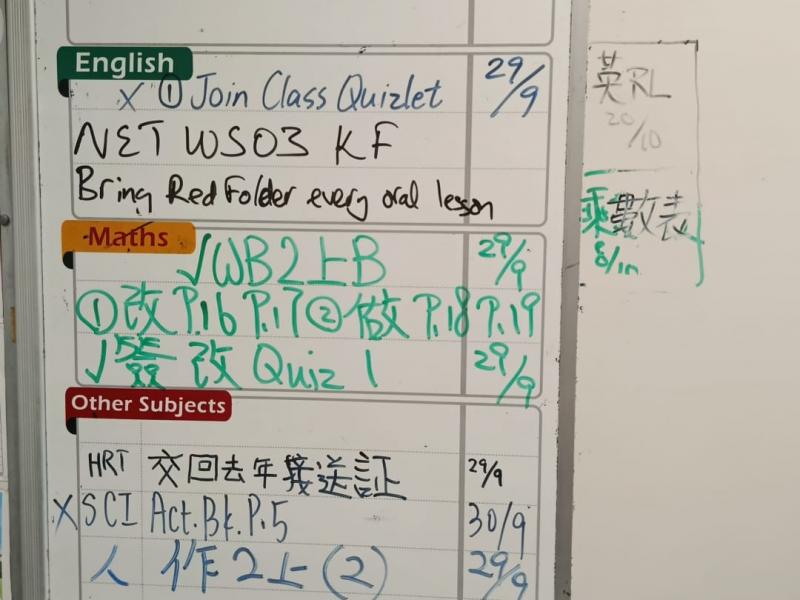 English
x ① Join Class Quizlet 29/9
NET WS03 KF
Bring Red Folder every oral lesson
Maths
√ WB2上B 29/9
① 改 P.16 P.17 ② 做 P.18 P.19
√ 改 Quiz 1 29/9
Other Subjects
HRT 交回去年接送証 29/9
X SCI Act.Bk.P.5 30/9
人 作2上(2) 29/9
英RL
20/10
乘數表
8/10